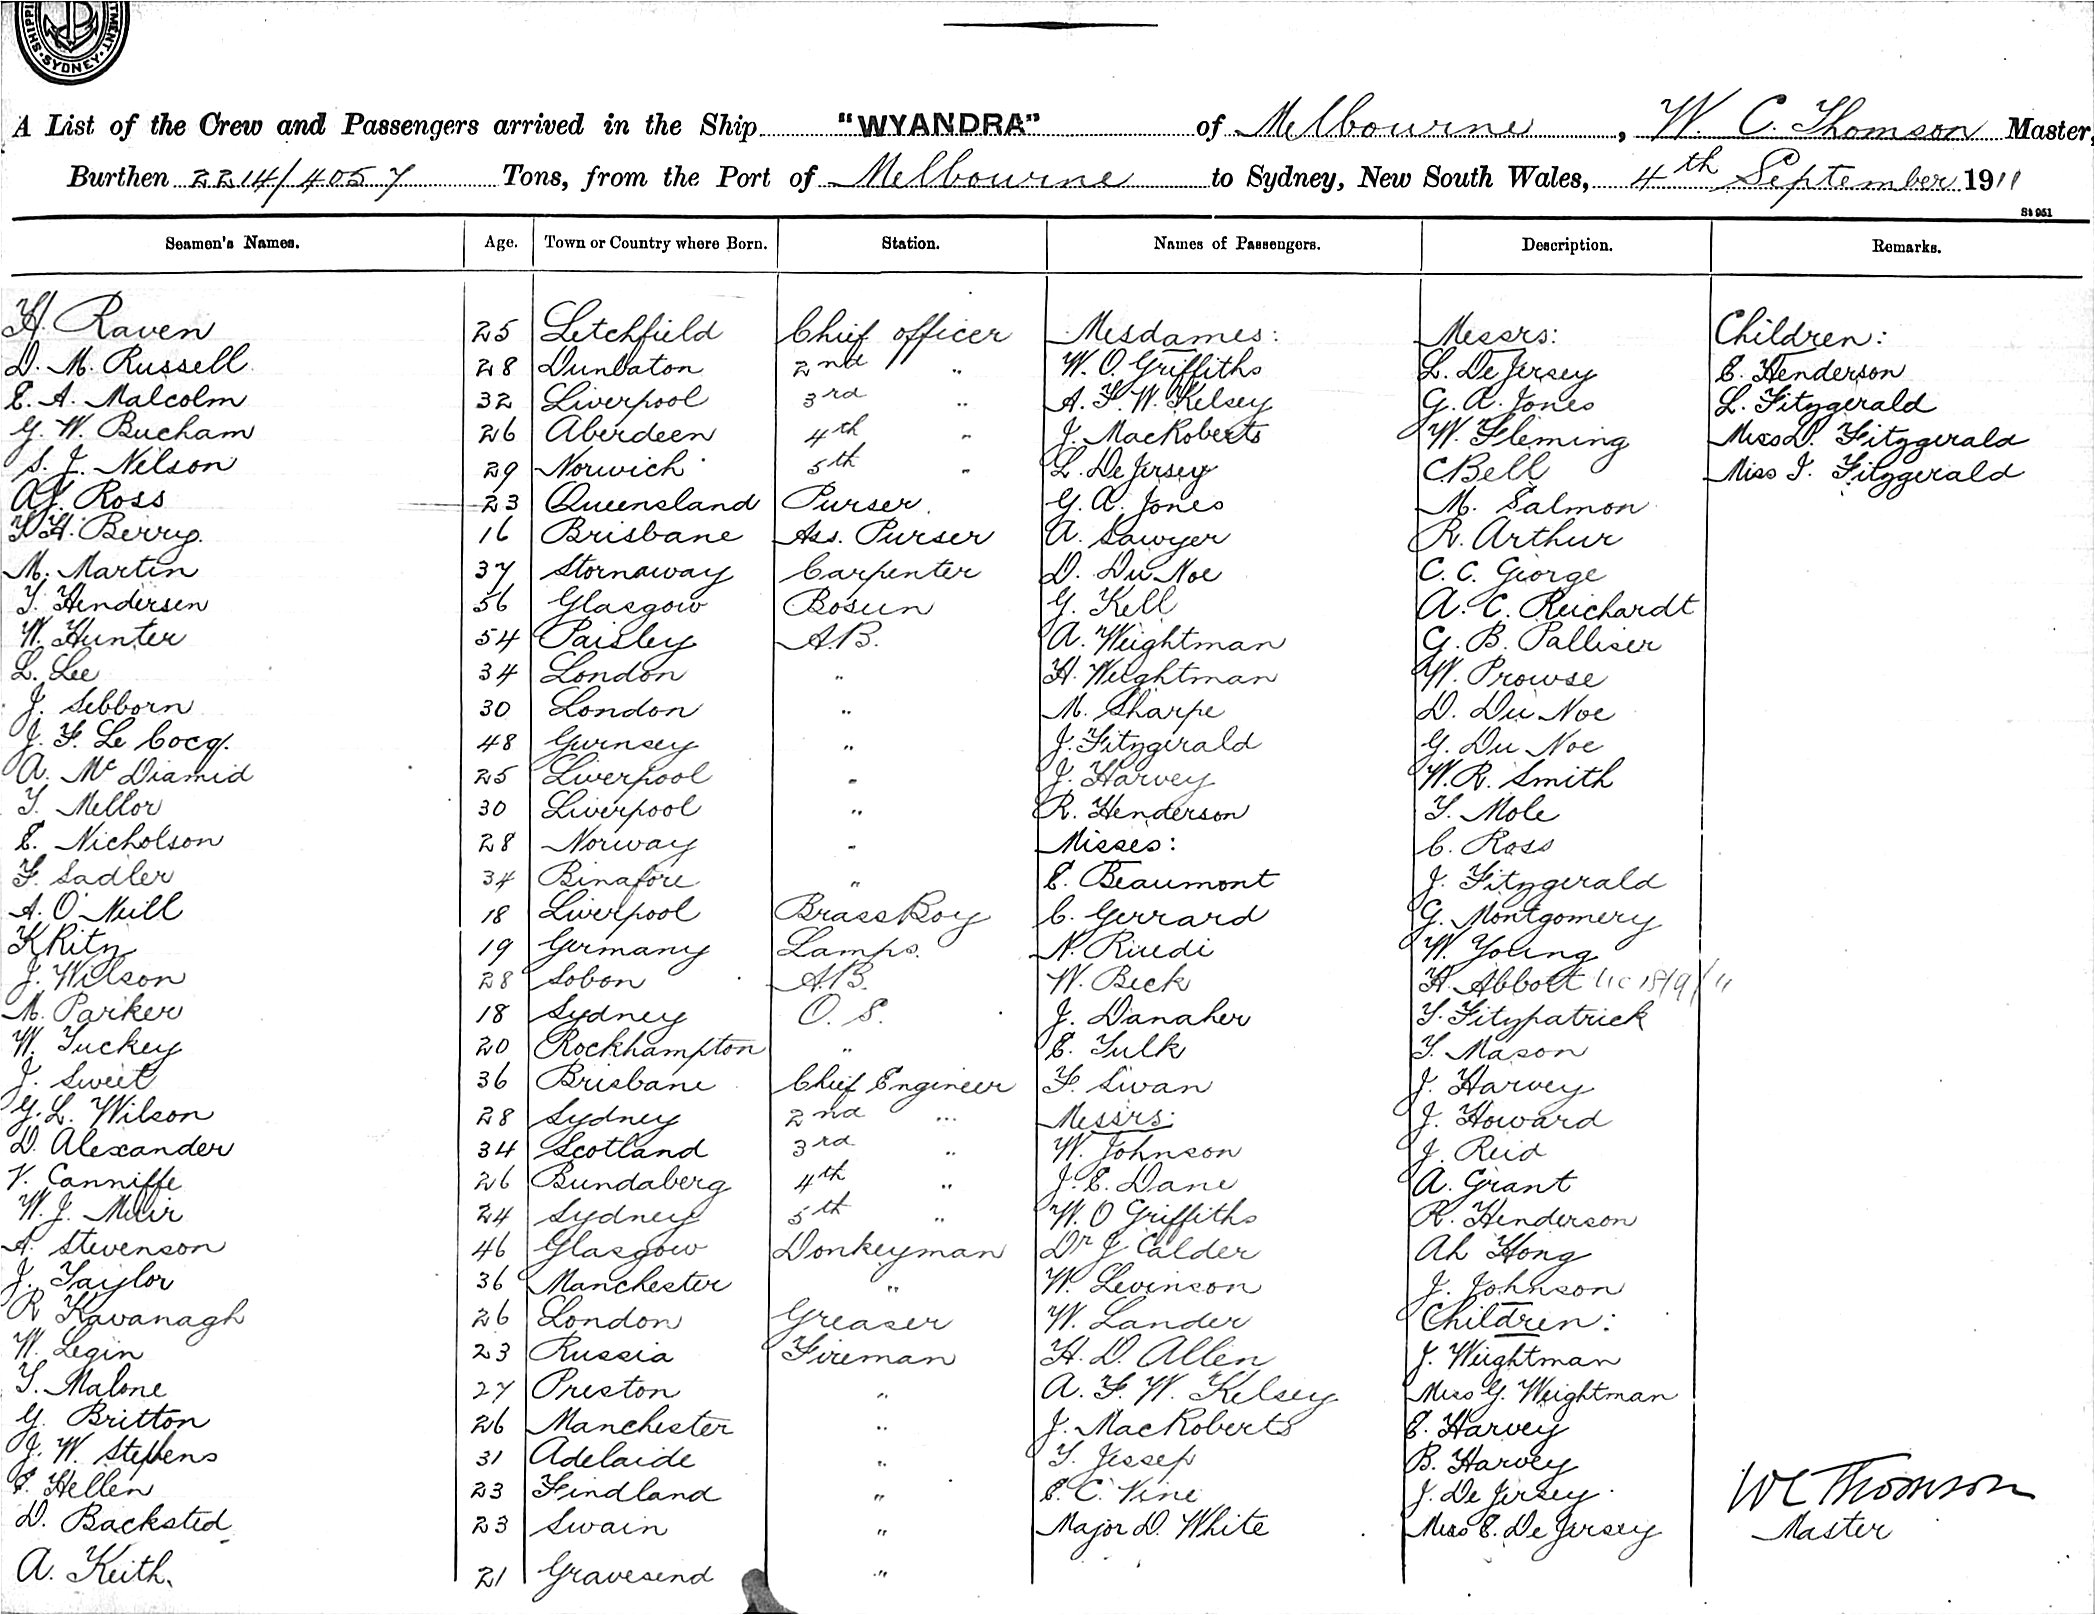 SHIPPI TMENT. SYDNEY.
A List of the Crew and Passengers arrived in the Ship "WYANDRA" of Melbourne, W. C. Thomson Master,
Burthen 2214/4057 Tons, from the Port of Melbourne to Sydney, New South Wales, 4th September 1911
St 951
Seamen's Names. Age. Town or Country where Born. Station. Names of Passengers. Description. Remarks.
H. Raven 25 Letchfield Chief officer Mesdames: Messrs: Children:
D. M. Russell 28 Dunbaton 2nd " W. O. Griffiths L. De Jersey E. Henderson
E. A. Malcolm 32 Liverpool 3rd " A. F. W. Kelsey G. A. Jones L. Fitzgerald
G. W. Bucham 26 Aberdeen 4th " J. MacRoberts W. Fleming Miss D. Fitzgerald
S. J. Nelson 29 Norwich 5th " L. De Jersey C Bell Miss I. Fitzgerald
A J. Ross 23 Queensland Purser. G. A. Jones M. Salmon
H. Berry. 16 Brisbane Ass. Purser A. Sawyer R. Arthur
M. Martin 37 Stornaway Carpenter D. Du Noe C. C. George
T. Hendersen 56 Glasgow Bosun G. Kell A. C. Reichardt
W. Hunter 54 Paisley A.B. A. Weightman G. B. Palliser
L. Lee 34 London " H. Weightman W. Prowse
J. Sebborn 30 London " M. Sharpe D. Du Noe
J. F. Le Cocq. 48 Gurnsey " J. Fitzgerald G. Du Noe
A. Mc Diamid 25 Liverpool " J. Harvey W. R. Smith
T. Mellor 30 Liverpool " R. Henderson T. Mole
E. Nicholson 28 Norway " Misses: C. Ross
F. Sadler 34 Binafore " E. Beaumont J. Fitzgerald
A. O'Neill 18 Liverpool Brass Boy C. Gerrard G. Montgomery
K Ritz 19 Germany Lamps. N. Riedi W. Young
J. Wilson 28 Sobon A.B. W. Beck H. Abbott 18/9/11
M. Parker 18 Sydney O. S. J. Danaher T. Fitzpatrick
W. Tuckey 20 Rockhampton " E. Tulk T. Mason
J. Sweet 36 Brisbane Chief Engineer F. Swan J. Harvey
G. L. Wilson 28 Sydney 2nd " Messrs: J. Howard
D. Alexander 34 Scotland 3rd " W. Johnson J. Reid
V. Canniffe 26 Bundaberg 4th " J. E. Dane A. Grant
W. J. Muir 24 Sydney 5th " W. O Griffiths R. Henderson
A. Stevenson 46 Glasgow Donkeyman Dr J Calder Ah Hong
J. Taylor 36 Manchester " W. Levinson J. Johnson
R Kavanagh 26 London Greaser W. Lander Children:
W. Legin 23 Russia Fireman H. D. Allen J. Weightman
T. Malone 27 Preston " A. F. W. Kelsey Miss G. Weightman
G. Britton 26 Manchester " J. MacRoberts E. Harvey
J. W. Stephens 31 Adelaide " T. Jessep B. Harvey
Hellen 23 Findland " E. C. Vine J. De Jersey. WC Thomson
D. Backsted 23 Swain " Major D. White Miss E. De Jersey Master
A. Keith. 21 Gravesend "